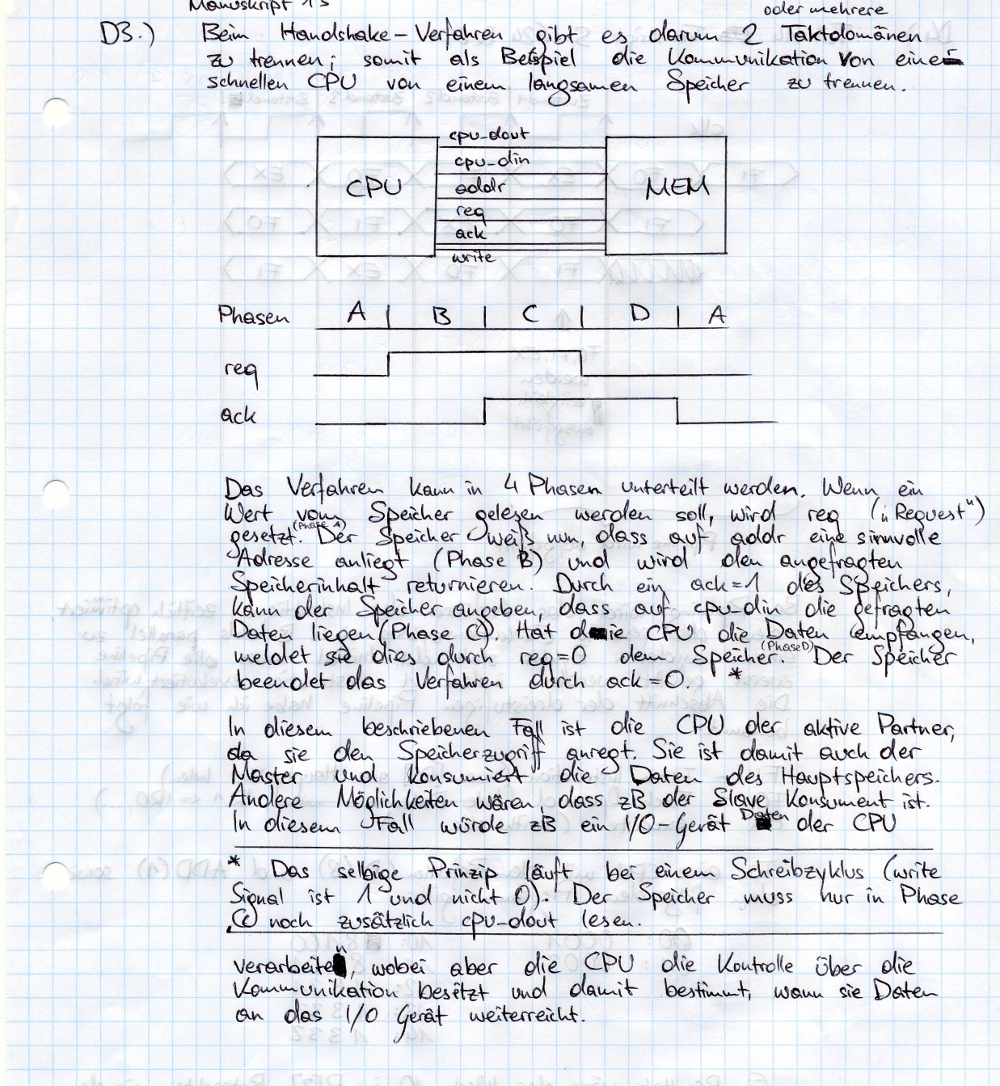 Manuskript 13
oder mehrere
D3.) Beim Handshake-Verfahren gibt es darum 2 Taktdomänen
zu trennen; somit als Beispiel die Kommunikation von einer
schnellen CPU von einem langsamen Speicher zu trennen.
cpu_dout
cpu_din
CPU addr MEM
req
ack
write
Phasen A | B | C | D | A
req
ack
Das Verfahren kann in 4 Phasen unterteilt werden. Wenn ein
Wert vom Speicher gelesen werden soll, wird req („Request")
gesetzt. (Phase A) Der Speicher weiß nun, dass auf addr eine sinnvolle
Adresse anliegt (Phase B) und wird den angefragten
Speicherinhalt returnieren. Durch ein ack=1 des Speichers,
kann der Speicher angeben, dass auf cpu-din die gefragten
Daten liegen (Phase C). Hat die CPU die Daten empfangen,
meldet sie dies durch req=0 dem Speicher. (Phase D) Der Speicher
beendet das Verfahren durch ack=0. *
In diesem beschriebenen Fall ist die CPU der aktive Partner,
da sie den Speicherzugriff anregt. Sie ist damit auch der
Master und konsumiert die Daten des Hauptspeichers.
Andere Möglichkeiten wären, dass zB der Slave Konsument ist.
In diesem Fall würde zB ein I/O-Gerät Daten der CPU
* Das selbige Prinzip läuft bei einem Schreibzyklus (write
Signal ist 1 und nicht 0). Der Speicher muss nur in Phase
C noch zusätzlich cpu-dout lesen.
verarbeiten, wobei aber die CPU die Kontrolle über die
Kommunikation besitzt und damit bestimmt, wann sie Daten
an das I/O Gerät weiterreicht.